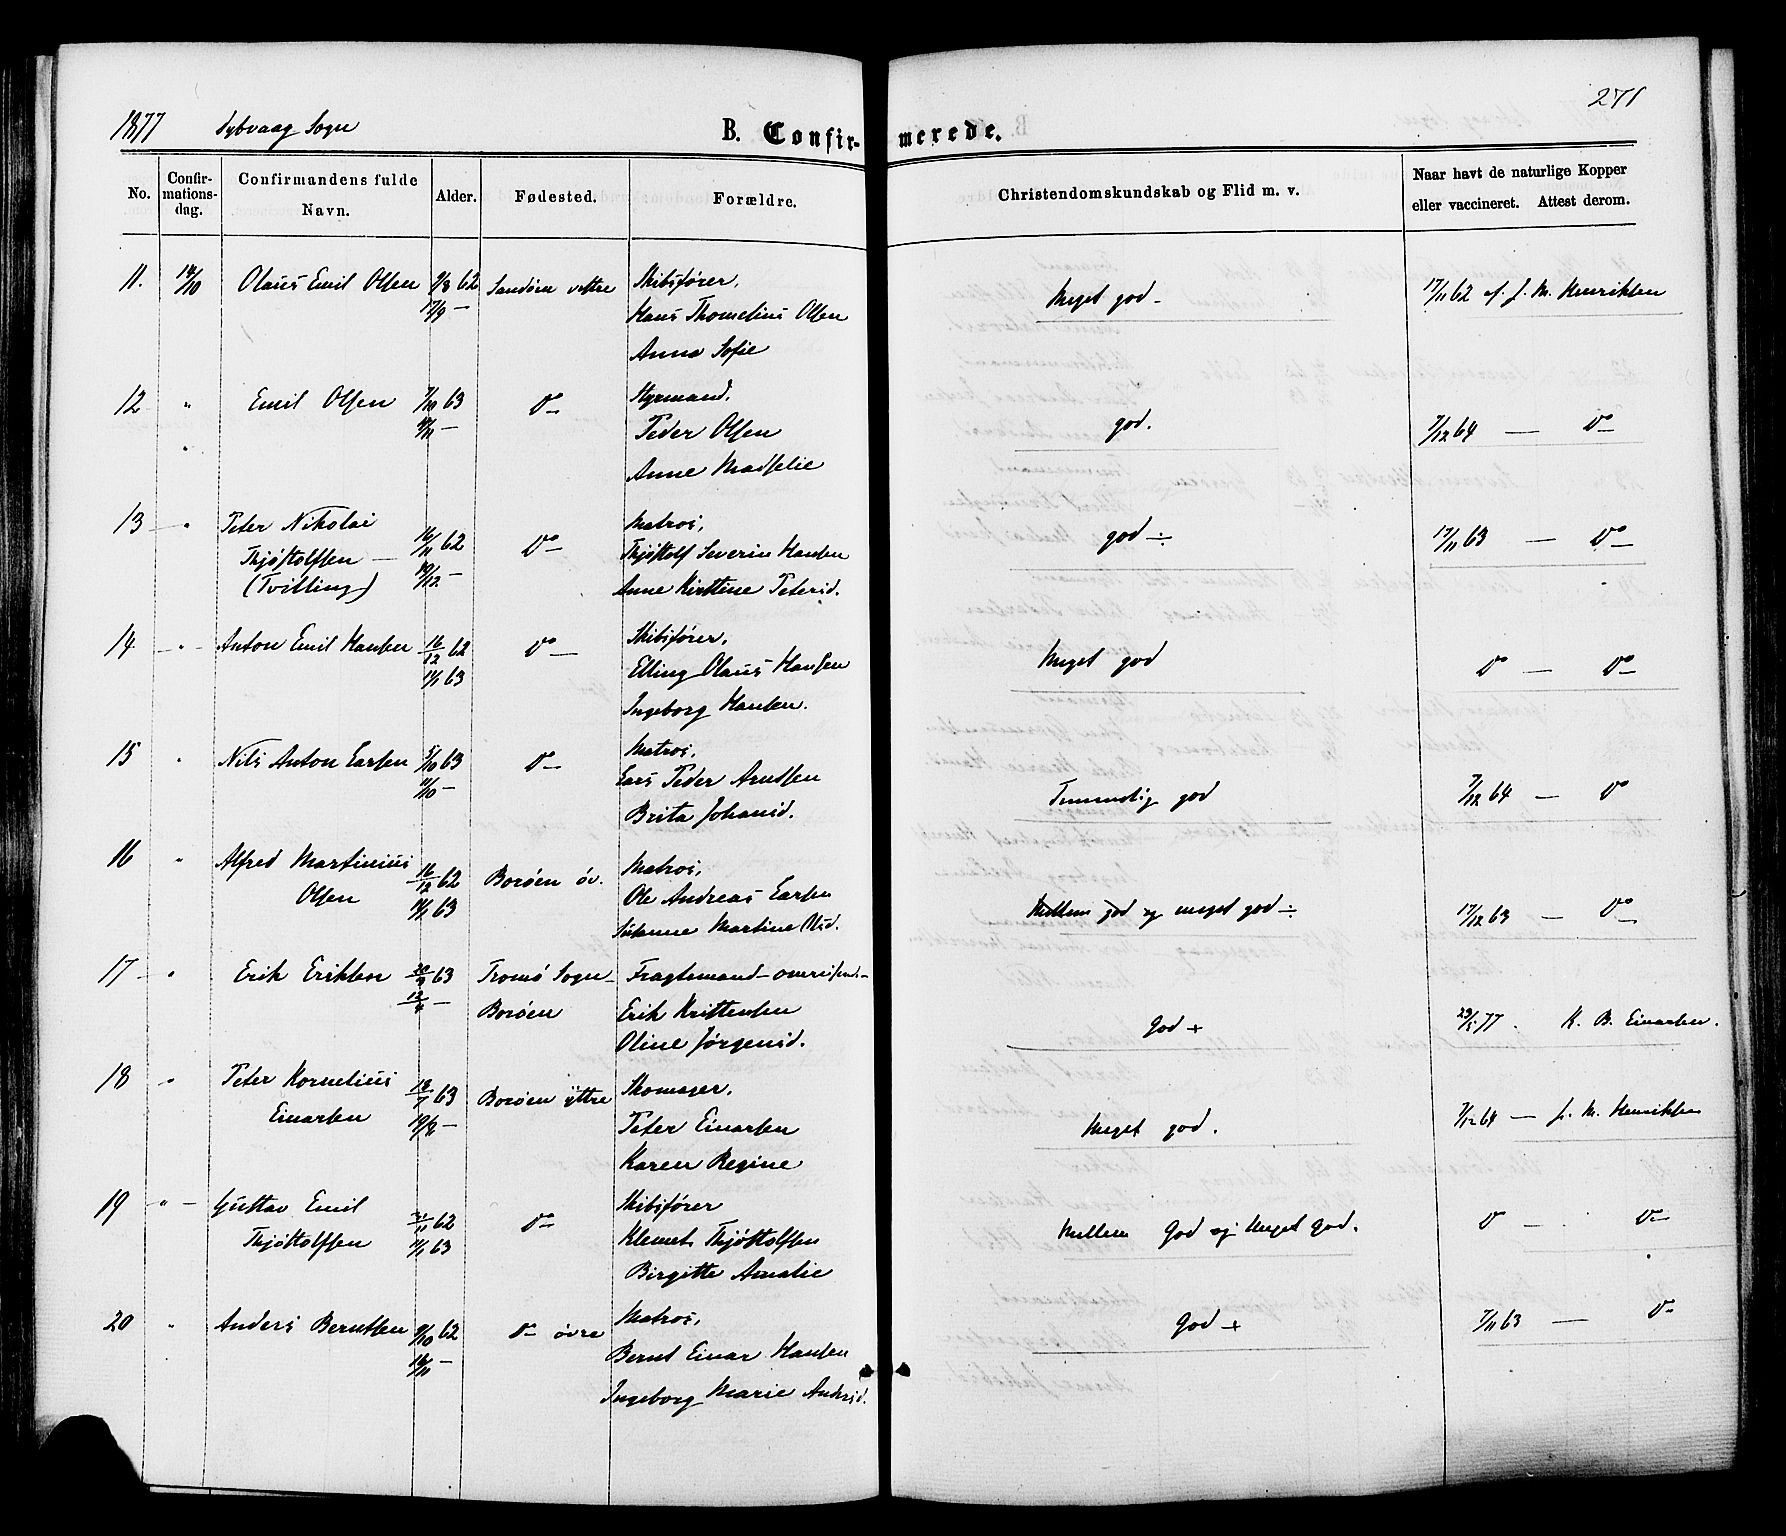 1877 Dybvaag Sogn
B. Confirmerede.
271
No. Confirmationsdag. Confirmandens fulde Navn. Alder. Fødested. Forældre. Christendomskundskab og Flid m. v. Naar havt de naturlige Kopper eller vaccineret. Attest derom.
11. 14/10 Olaus Emil Olsen 9/8 62 Sandøen vestre Skibsfører,
17/9 — Hans Thomelius Olsen Meget god - 17/11 62 af J. M. Henriksen
Anna Sofie
12 " Emil Olsen 7/10 63 Do Styrmand.
" — Peder Olsen god. 7/12 64 — Do
Anne Madselie
13 — " Peter Nikolai Matros,
Thjøstolfsen — 16/11 62 Do Thjøstolf Severin Hansen god ÷ 17/11 63 — Do
(Tvilling) 19/12 — Anne Kirstine Petersd.
14 - " - Anton Emil Hansen 16/12 62 Do Skibsfører,
11/1 63 Elling Olaus Hansen Meget god Do — Do
Ingeborg Hansen.
15 " Nils Anton Larsen 5/10 63 Do Matros,
11/10 — Lars Peder Arntsen Temmelig god 7/12 64 — Do
Brita Johansd.
16 " Alfred Martinius 16/12 62 Borøen øv. Matros,
Olsen 63 Ole Andreas Larsen Mellem god og meget god ÷ 17/12 63 — Do
Susanne Martine Olsd.
17 — " Erik Eriksen 63 Tromø Sogn - Fragtemand
12/4 — Borøen Erik Kristensen God + 23/5 77. K. B. Einarsen.
Oline Jørgensd.
18 " Peter Kornelius 18/7 63 Borøen yttre Skomager,
Einarsen — Peter Einarsen Meget god. 7/12 64 — J. M. Henriksen
Karen Regine
19 " — Gustav Emil 62 Do Skibsfører
Thjøstolfsen 11/1 63 Klemet Thjøstolfsen Mellem God og Meget god. Do — Do
Birgitte Amalie
20 " Anders Berntsen 9/10 62 Do øvre Matros,
16/11 — Bernt Einar Hansen God + 7/11 63 — Do
Ingeborg Marie Andersd.